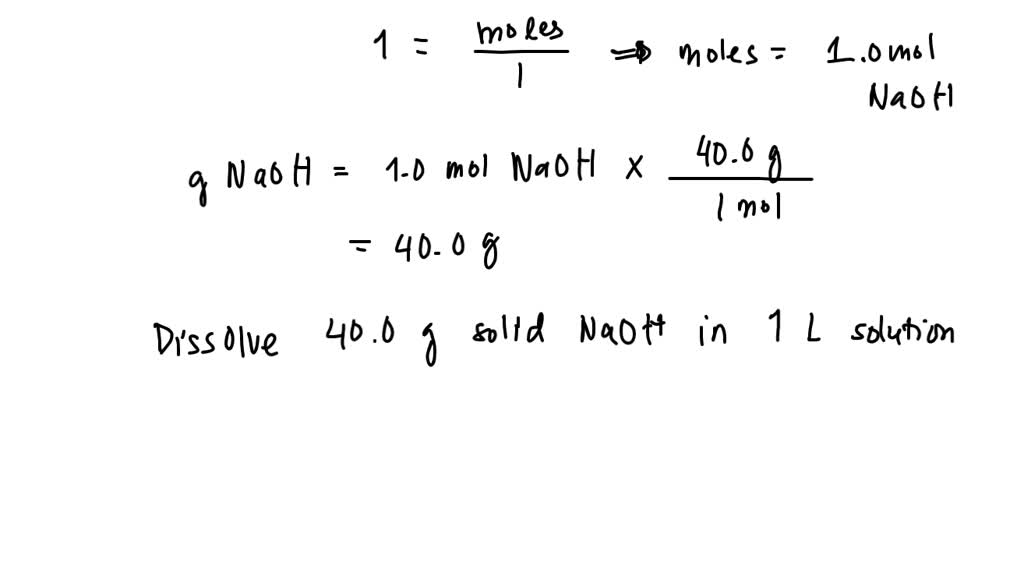 1 = moles / 1 ⇒ moles = 1.0 mol NaOH
g NaOH = 1.0 mol NaOH × 40.0 g / 1 mol
= 40.0 g
Dissolve 40.0 g solid NaOH in 1 L solution